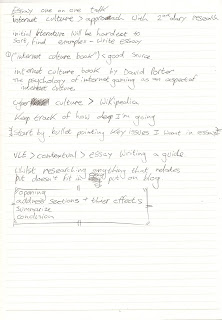 Essay one on one talk
Internet culture > approach with 2nd'ary research
initial literature will be hardest to
sort, find examples - write essay
① ("internet culture book") < good source.
Internet culture book by David Porter
The psychology of internet gaming as an aspect of
internet culture.
cyber culture > Wikipedia
Keep track of how deep I'm going
Start by bullet pointing key issues I want in essay
VLE > contextual > essay writing a guide
Whilst researching anything that relates
but doesn't fit in put on blog
opening
address sections + their effects
Summarise
conclusion